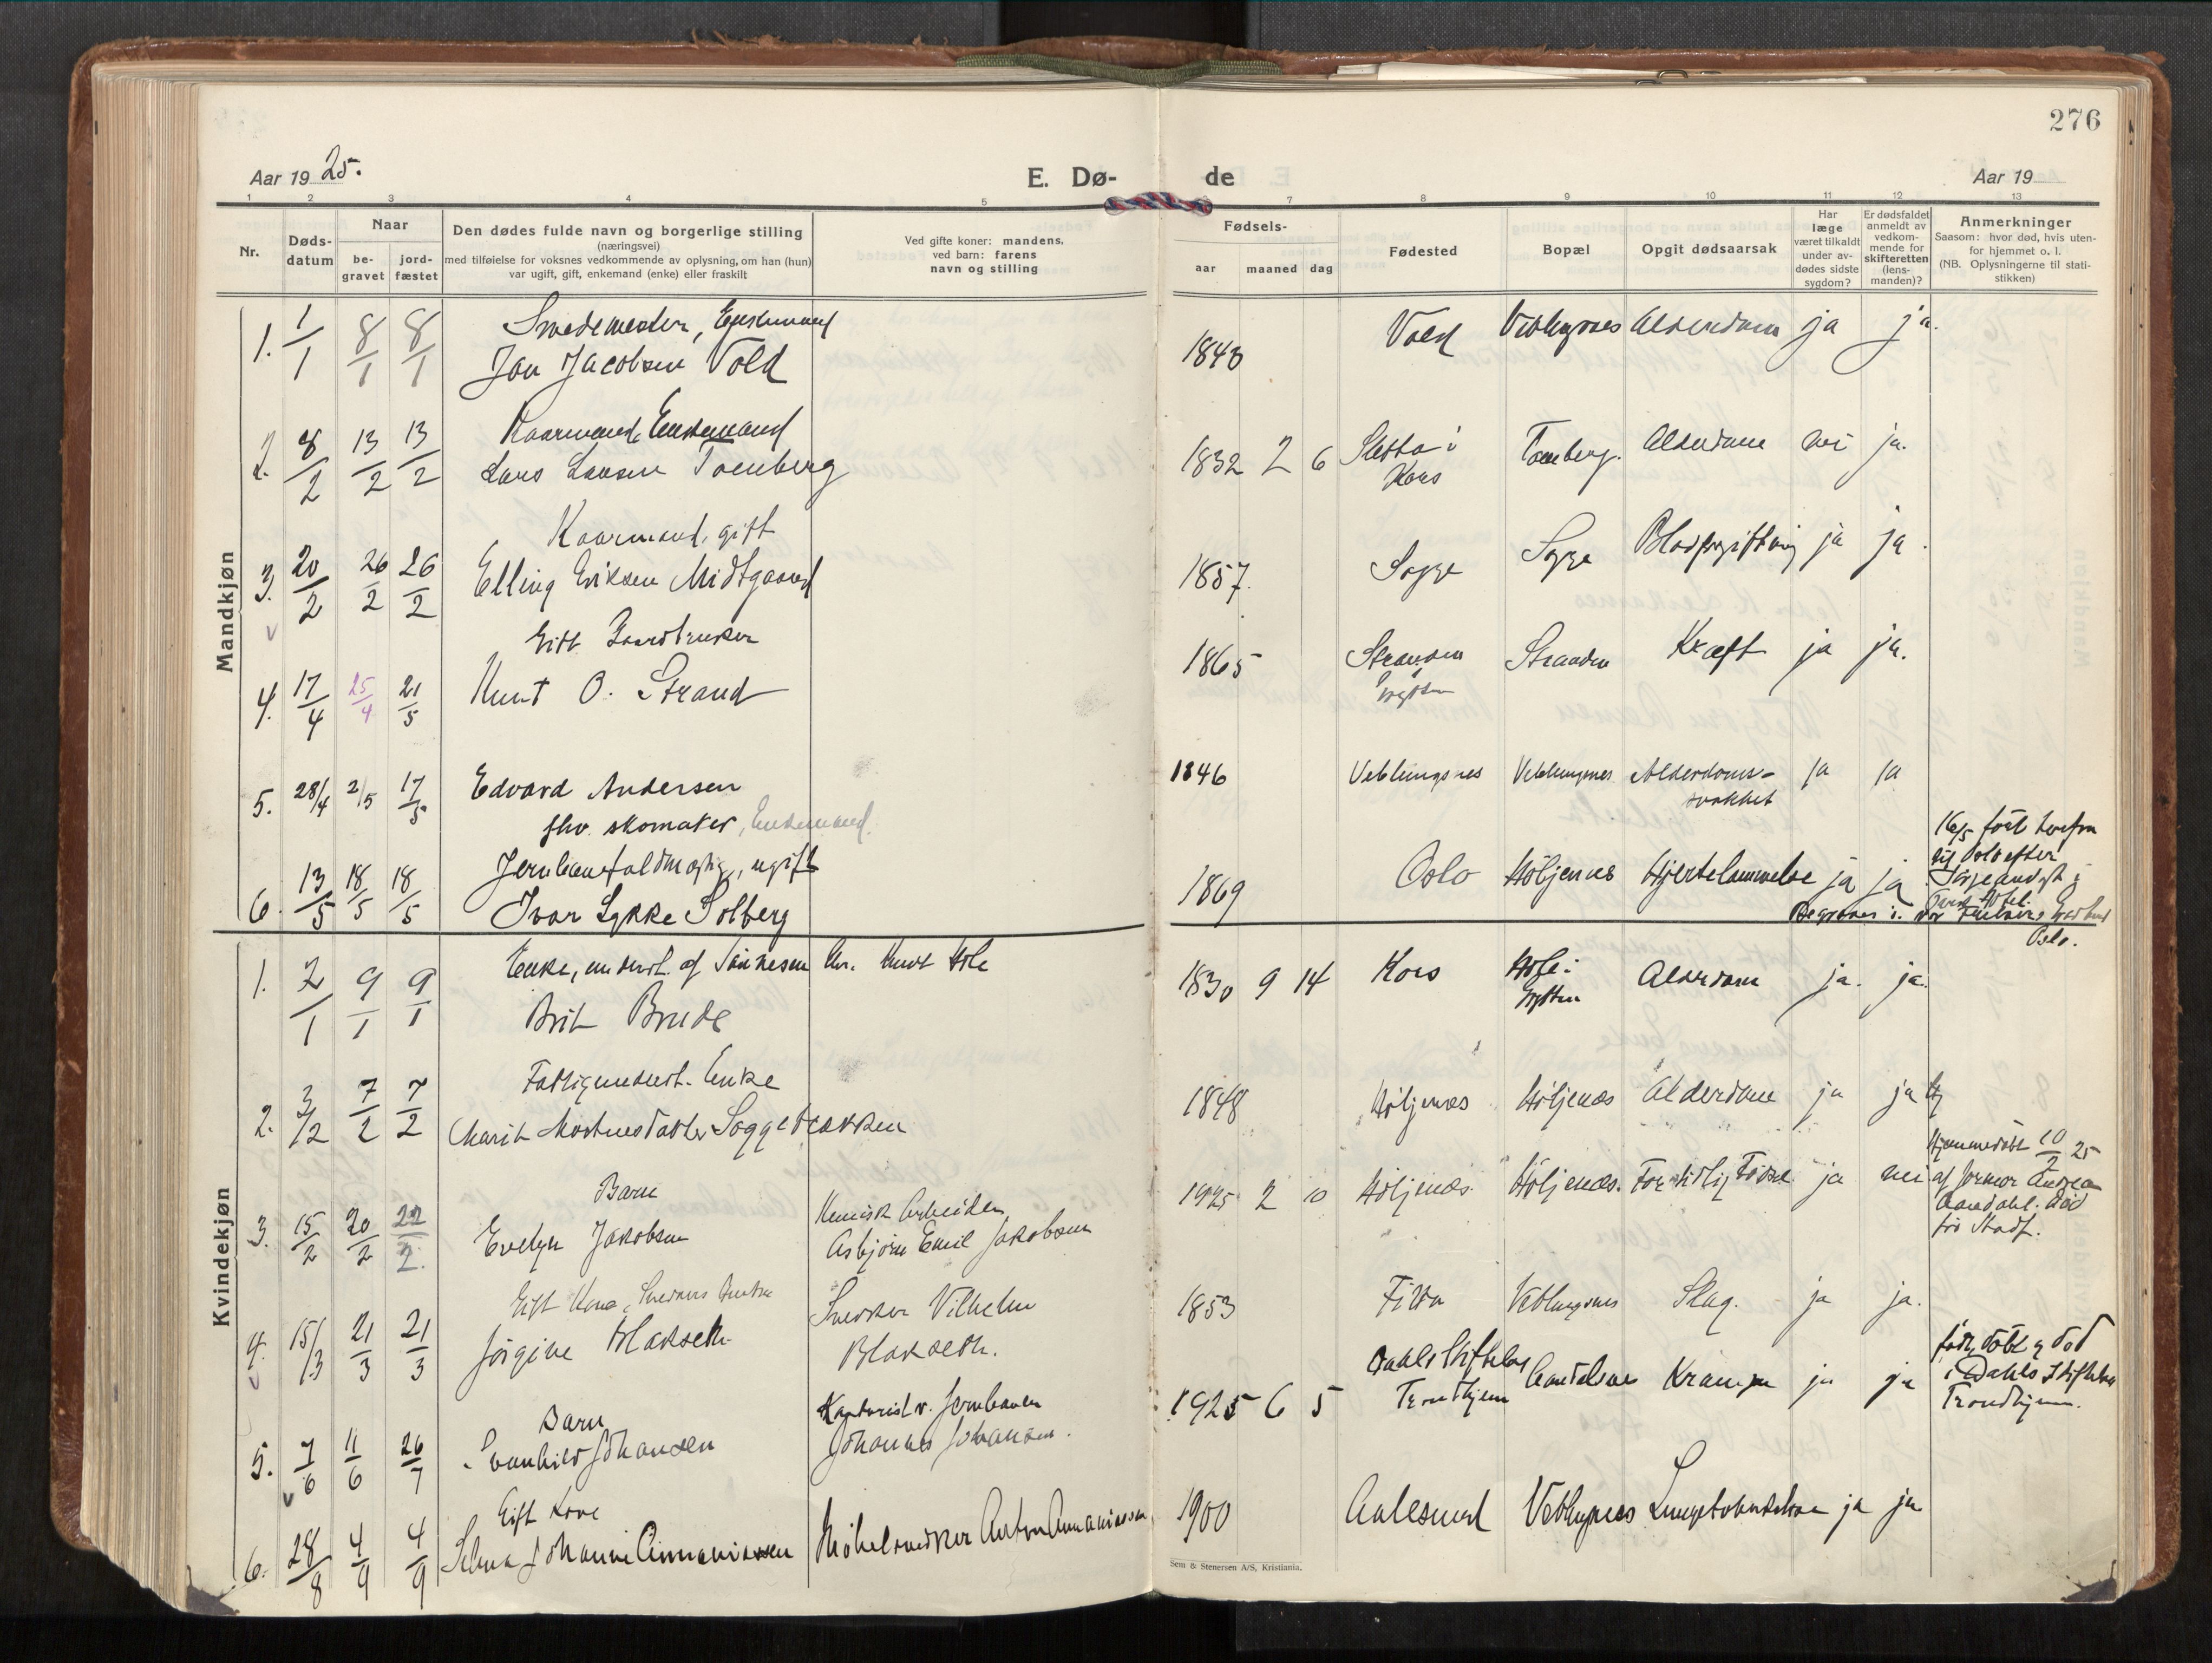 276
Aar 19 25.
E. Dø-
de
Aar 19
1 2 3 4 5 7 8 9 10 11 12 13
Nr.
Døds-
datum
Naar
be-
gravet
jord-
fæstet
Den dødes fulde navn og borgerlige stilling
(næringsvei)
med tilføielse for voksnes vedkommende av oplysning, om han (hun)
var ugift, gift, enkemand (enke) eller fraskilt
Ved gifte koner: mandens,
ved barn: farens
navn og stilling
Fødsels-
aar maaned dag
Fødested
Bopæl
Opgit dødsaarsak
Har
læge
været tilkaldt
under av-
dødes sidste
sygdom?
Er dødsfaldet
anmeldt av
vedkom-
mende for
skifteretten
(lens-
manden)?
Anmerkninger
Saasom: hvor død, hvis uten-
for hjemmet o. l.
(NB. Oplysningerne til stati-
stikken)
Mandkjøn
1. 1/1 8/1 8/1 Smedemester, Enkemand
Jon Jacobsen Vold
1843 Vold Veblungsnes Alderdom ja ja.
2. 8/2 13/2 13/2 Kaarmand, Enkemand
Lars Larsen Tomberg
1832 2 6 Sletta i
Kors
Tomberg. Alderdom nei ja.
3. 20/2 26/2 26/2 Kaarmand, gift
Elling Eriksen Midtgaard
1857. Sogge Sogge Blodforgiftning ja ja.
4. 17/4 25/4 21/5 Gift Gaardbruker
Knut O. Strand
1865 Stranden
Grytten
Stranden Kræft ja ja.
5. 28/4 2/5 17/5 Edvard Andersen
fhv. skomaker, Enkemand.
1846 Veblungsnes Veblungsnes Alderdoms-
svakhet
ja ja
6. 13/5 18/5 18/5 Jernbanefuldmægtig, ugift
Ivar Lykke Solberg
1869 Oslo Höljenes Hjertelammelse ja ja
16/5 ført herfra
til Oslo efter
Sørgeandagt i
Begraves i. Vor Frelsers Gravlund
Oslo.
Kvindekjøn
1. 2/1 9/1 9/1 Enke, underst. af Sönnesön Kr. Knut Hole
Brit Brude
1830 9 14 Kors Hole i
Grytten
Alderdom ja. ja.
2. 3/2 7/2 7/2 Fattigunderst. Enke
Marit Mortensdatter Soggebakken
1848 Höljenes Höljenes Alderdom ja ja
3. 15/2 20/2 22/2 Barn
Evelyn Jakobsen
Kemisk Arbeider
Asbjörn Emil Jakobsen
1925 2 10 Höljenes Höljenes. For tidlig Födsel ja nei
Hjemmedöbt 10/2 25
af Jormor Andrea
Aandahl. död
för Stadf.
4. 15/3 21/3 21/3 Gift Kone, Snedkers Hustru
Jörgine Blakseth
Snedker Vilhelm
Blakseth.
1853 Fiva Veblungsnes Slag. ja ja.
5. 7/6 11/6 26/7 Barn
Svanhild Johansen
Kontorist v. Jernbanen
Johannes Johansen.
1925 6 5 Dahls Stiftelse
Trondhjem
Aandalsnes Krampe ja ja
född, döbt og död
i Dahls Stiftelse
Trondhjem.
6. 28/8 4/9 4/9 Gift Kone
Selma Johanne Annaniassen
Möbelsnedker Anton Annaniassen
1900 Aalesund Veblungsnes Lungetuberkulose ja ja
Sem & Stenersen A/S, Kristiania.